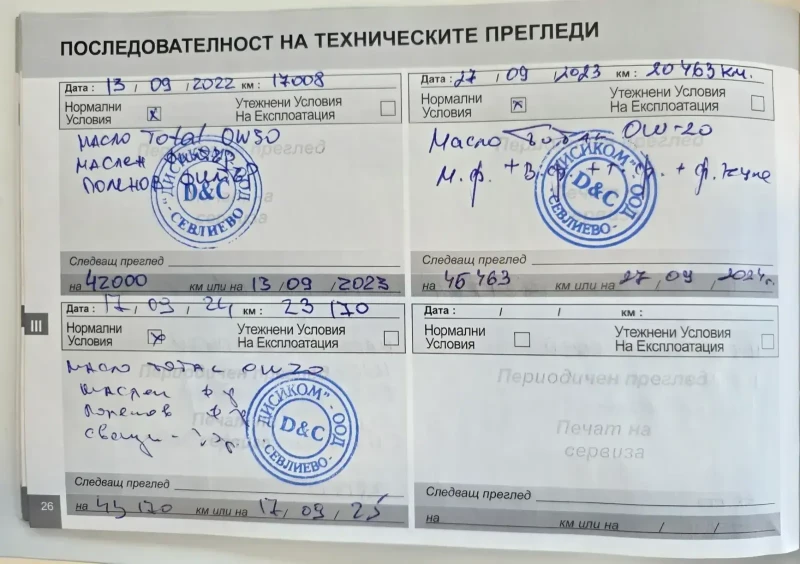 ПОСЛЕДОВАТЕЛНОСТ НА ТЕХНИЧЕСКИТЕ ПРЕГЛЕДИ
Дата : 13 / 09 / 2022 км : 17008
Нормални Условия x Утежнени Условия На Експлоатация
масло Total 0W30
маслен филтър
поленов филтър
"ДИСИКОМ" ООД
D&C
- СЕВЛИЕВО -
Следващ преглед
на 42000 км или на 13 / 09 / 2023
Дата : 27 / 09 / 2023 км : 20463 км.
Нормални Условия x Утежнени Условия На Експлоатация
Масло Тотал 0W-20
м.ф. + в.ф. + г.ф. + ф.купе
"ДИСИКОМ" ООД
D&C
- СЕВЛИЕВО -
Следващ преглед
на 45 463 км или на 27 / 09 / 2024г.
III
Дата : 17 / 09 / 24 км : 23 170
Нормални Условия x Утежнени Условия На Експлоатация
масло тотал 0W20
маслен
Поленов
свещи
"ДИСИКОМ" ООД
D&C
- СЕВЛИЕВО -
Следващ преглед
на 43 170 км или на 17 / 09 / 25
Дата : / / км :
Нормални Условия Утежнени Условия На Експлоатация
Периодичен преглед
Печат на
сервиза
Следващ преглед
на км или на / /
26